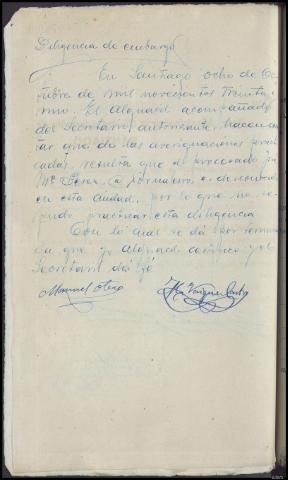 Diligencia de embargo
En Santiago ocho de Oc-
tubre de mil novecientos treinta
uno. El Alguacil acompañado
del Secretario autorizante, hacen cons-
tar que de las averiguaciones practi-
cadas, resulta que el procesado José
Mª Perez, es jornalero y desconocido
en esta ciudad, por lo que no se
pudo practicar esta diligencia
Con lo cual se dá por termina-
da que yo Alguacil conmigo y el
Secretario doy fé
Manuel Otero Vazquez